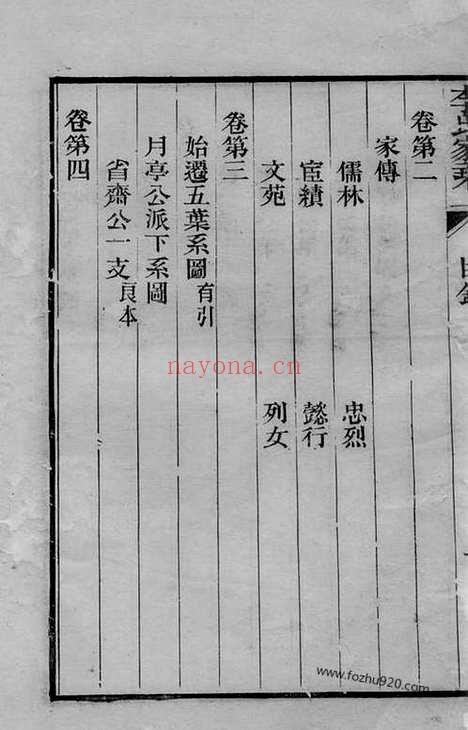 卷第二
家傳
儒林 忠烈
宦績 懿行
文苑 列女
卷第三
始遷五葉系圖有引
月亭公派下系圖
省齋公一支良本
卷第四
nayona.cn
www.fozhu920.com